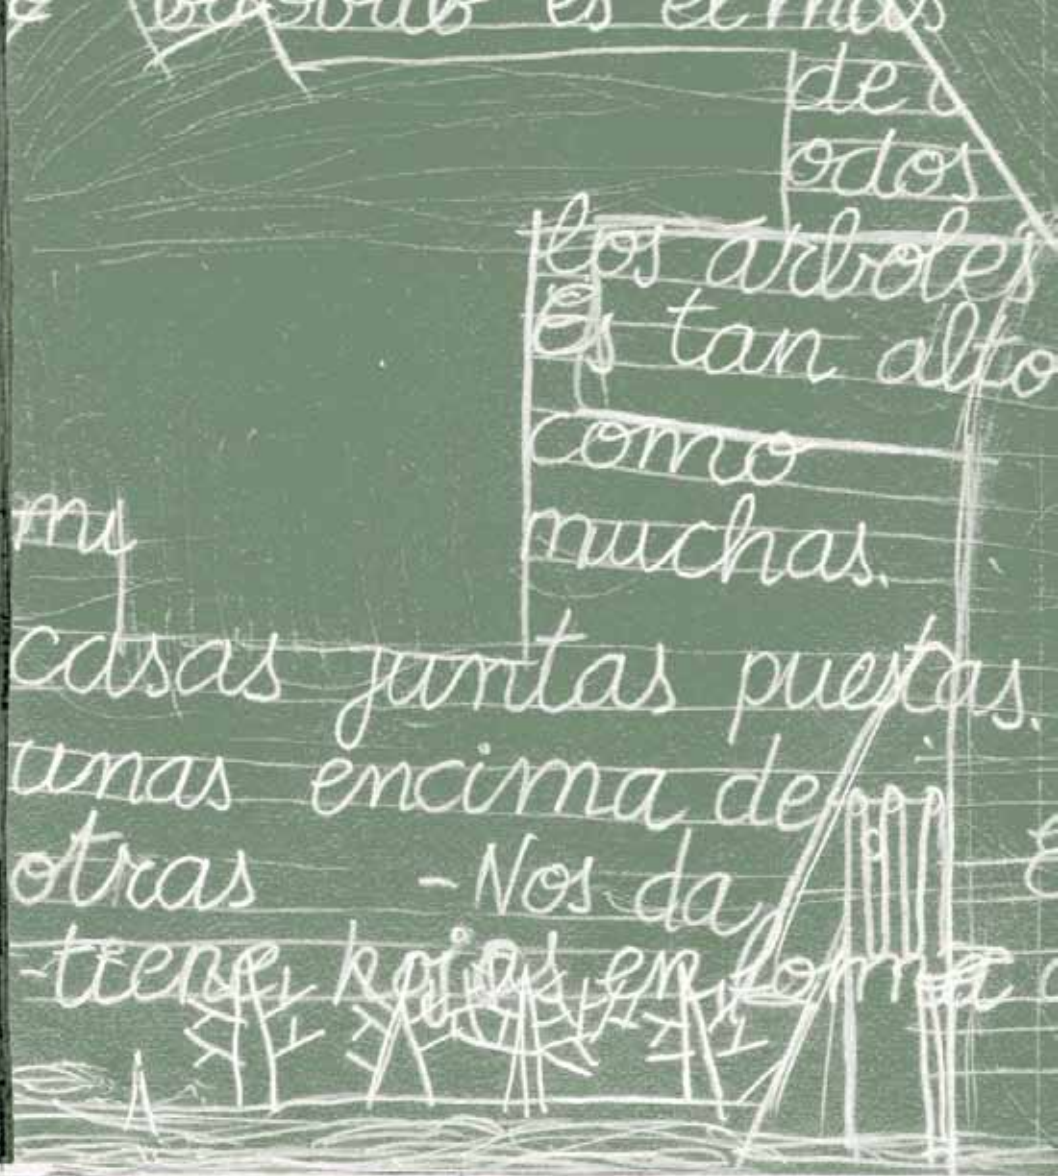 es el más
de
odos
los arboles
Es tan alto
como
mi muchas.
casas juntas puestas.
unas encima de
otras -Nos da
-tiene hojas en forma